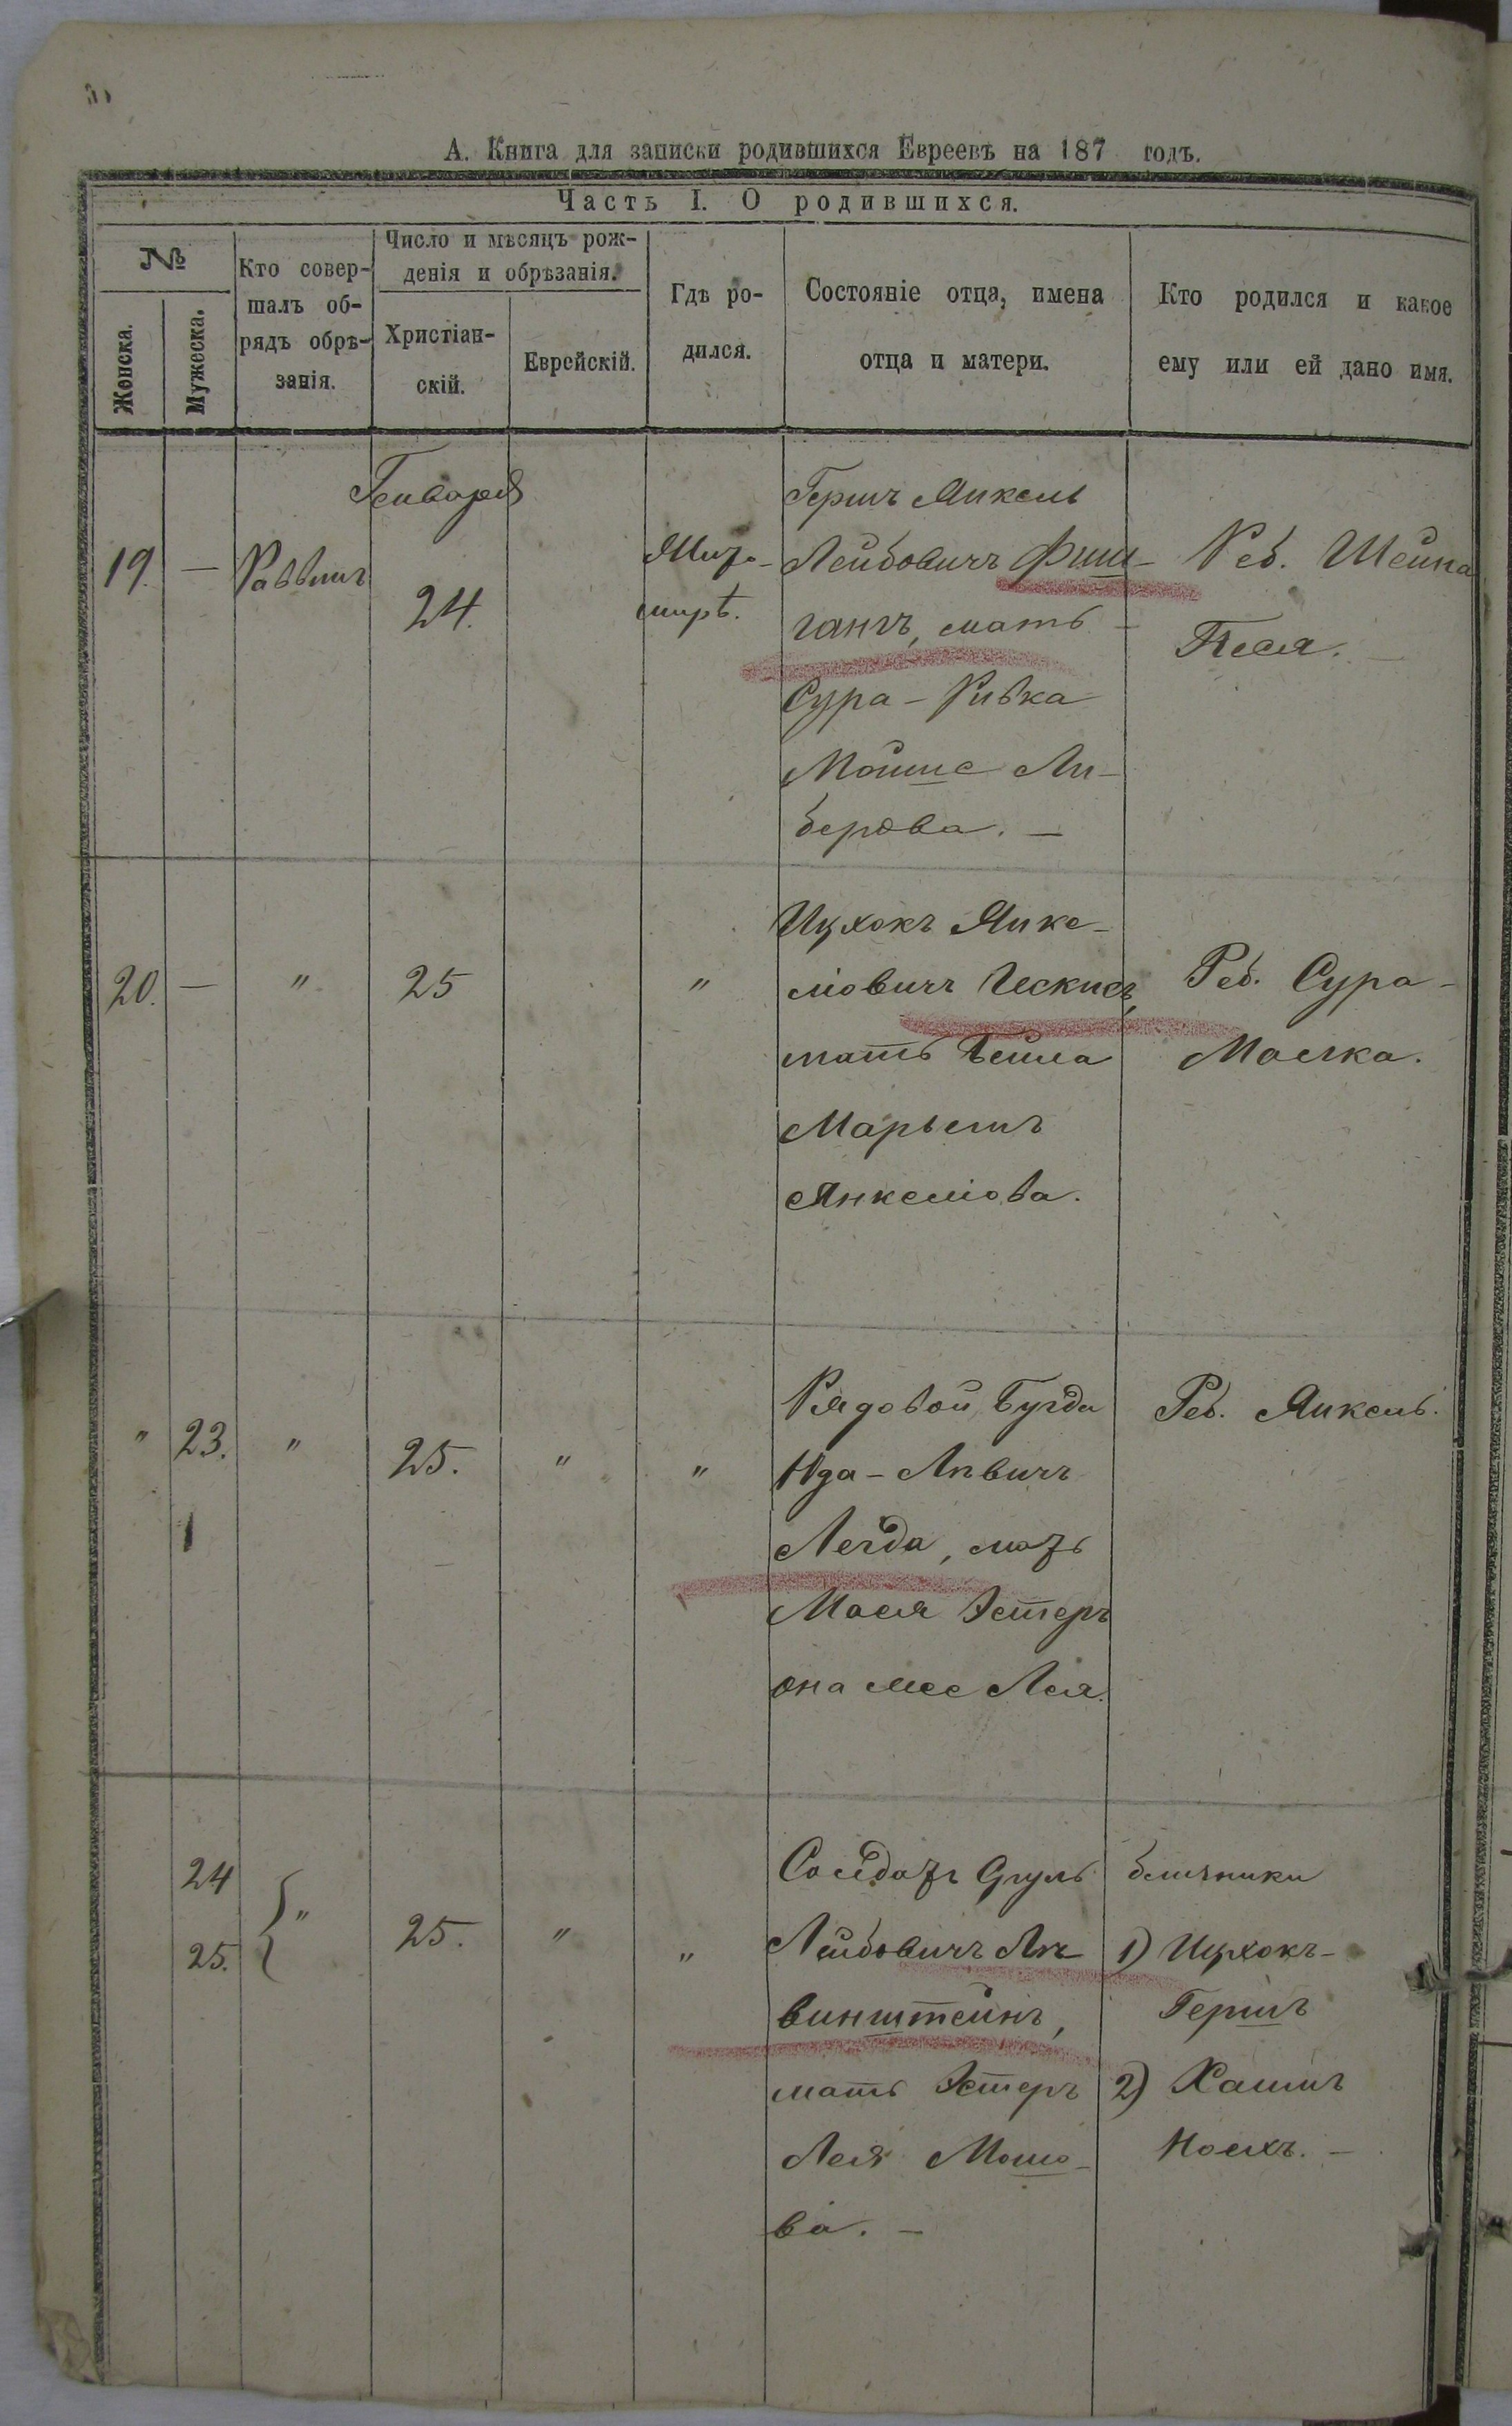 А. Книга для записки родившихся Евреевъ на 187 годъ.
Часть I. О родившихся.
№
Женска.
Мужеска.
Кто совер-
шалъ об-
рядъ обрѣ-
занія.
Число и мѣсяцъ рож-
денія и обрѣзанія.
Христіан-
скій.
Еврейскій.
Гдѣ ро-
дился.
Состояніе отца, имена
отца и матери.
Кто родился и какое
ему или ей дано имя.
Генваря
19. —
Раввинъ
24.
Жито-
мирѣ.
Гершъ Янкель
Лейбовичъ Фиш-
гангъ, мать
Сура - Ривка
Мойше Ли-
берова. —
Реб. Шейна
Песя. —
20. — " 25 "
Ицхокъ Янке-
ловичъ
мать Бейла
Марьемъ
Янкелова.
Реб. Сура -
Малка.
" 23. " 25. " "
Рядовой
Лейда, мать
Мася Эстеръ
она же Лея.
Реб. Янкель.
24
25. " 25. " "
Солдатъ Сруль
Лейбовичъ Ле
винштейнъ,
мать Эстеръ
Лея Мошо-
ва. —
близнюки
1) Ицхокъ -
Гершъ
2) Хаимъ
Ноехъ. —